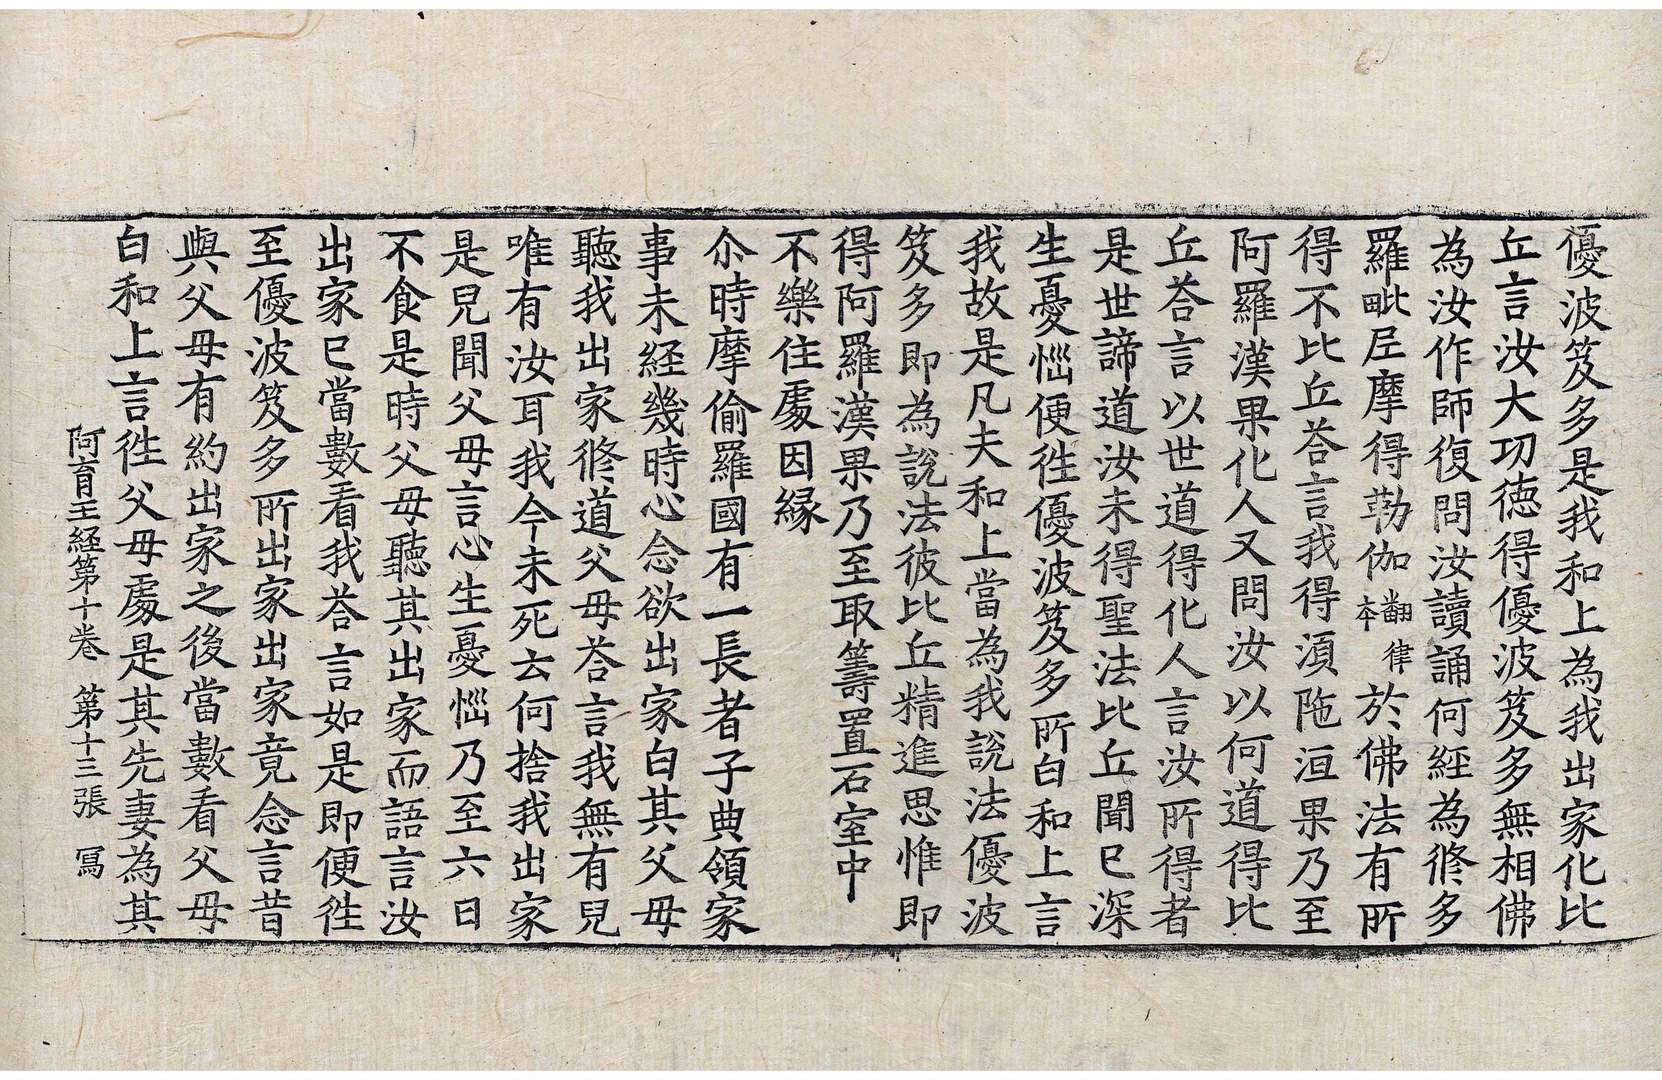 優波笈多是我和上為我出家化比
丘言汝大功徳得優波笈多無相佛
為汝作師復問汝讀誦何經為修多
羅毗𡰱摩得勒伽翻律本於佛法有所
得不比丘荅言我得湏陁洹果乃至
阿羅漢果化人又問汝以何道得比
丘荅言以世道得化人言汝所得者
是世諦道汝未得聖法比丘聞已深
生憂惱便徃優波笈多所白和上言
我故是凡夫和上當為我說法優波
笈多即為說法彼比丘精進思惟即
得阿羅漢果乃至取籌置石室中
不樂住處因縁
尒時摩偷羅國有一長者子典領家
事未經幾時心念欲出家白其父母
聽我出家修道父母荅言我無有兒
唯有汝耳我今未死云何捨我出家
是兒聞父母言心生憂惱乃至六日
不食是時父母聽其出家而語言汝
出家已當數看我荅言如是即便徃
至優波笈多所出家出家竟念言昔
與父母有約出家之後當數看父母
白和上言徃父母處是其先妻為其
阿育王経第十卷 第十三張 冩